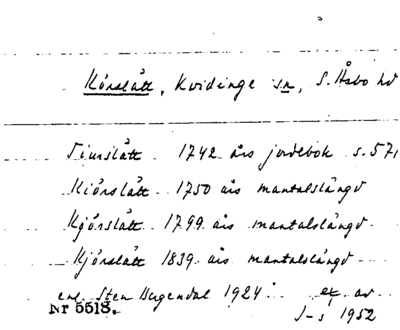 Körslätt, Kvidinge sn, S. Åsbo hd
Siurslätt 1742 års jordebok s. 571
Kiörslätt 1750 års mantalslängd
Kjörslätt 1799 års mantalslängd
Kjörslätt 1839 års mantalslängd
enl. Sten Hugendal 1924. ex. av
Nr 5518. J-s 1952